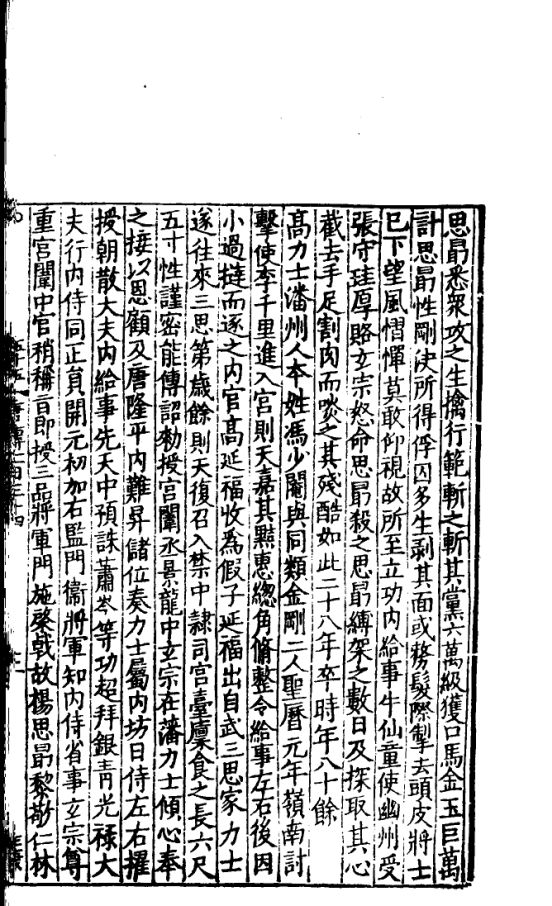 思勗悉衆攻之生擒行範斬之斬其黨六萬級獲口馬金玉巨萬
計思勗性剛決所得俘囚多生剥其面或剺髮際掣去頭皮將士
巳下望風慴憚莫敢仰視故所至立功內給事牛仙童使幽州受
張守珪厚賂玄宗怒命思勗殺之思勗縛架之數日乃探取其心
截去手足割肉而啖之其殘酷如此二十八年卒時年八十餘
高力士潘州人本姓馮少閹與同類金剛二人聖曆元年嶺南討
擊使李千里進入宮則天嘉其黠惠緫角脩整令給事左右後因
小過撻而逐之內官高延福收為假子延福出自武三思家力士
遂往來三思第歲餘則天復召入禁中隷司宮臺廪食之長六尺
五寸性謹密能傳詔勑授宮闈丞景龍中玄宗在藩力士傾心奉
之接以恩顧及唐隆平內難昇儲位奏力士屬內坊日侍左右擢
授朝散大夫內給事先天中預誅蕭岑等功超拜銀青光禄大
夫行內侍同正員開元初加右監門衞將軍知內侍省事玄宗尊
重宮闈中官稍稱旨即授三品將軍門施棨戟故楊思勗黎敬仁林